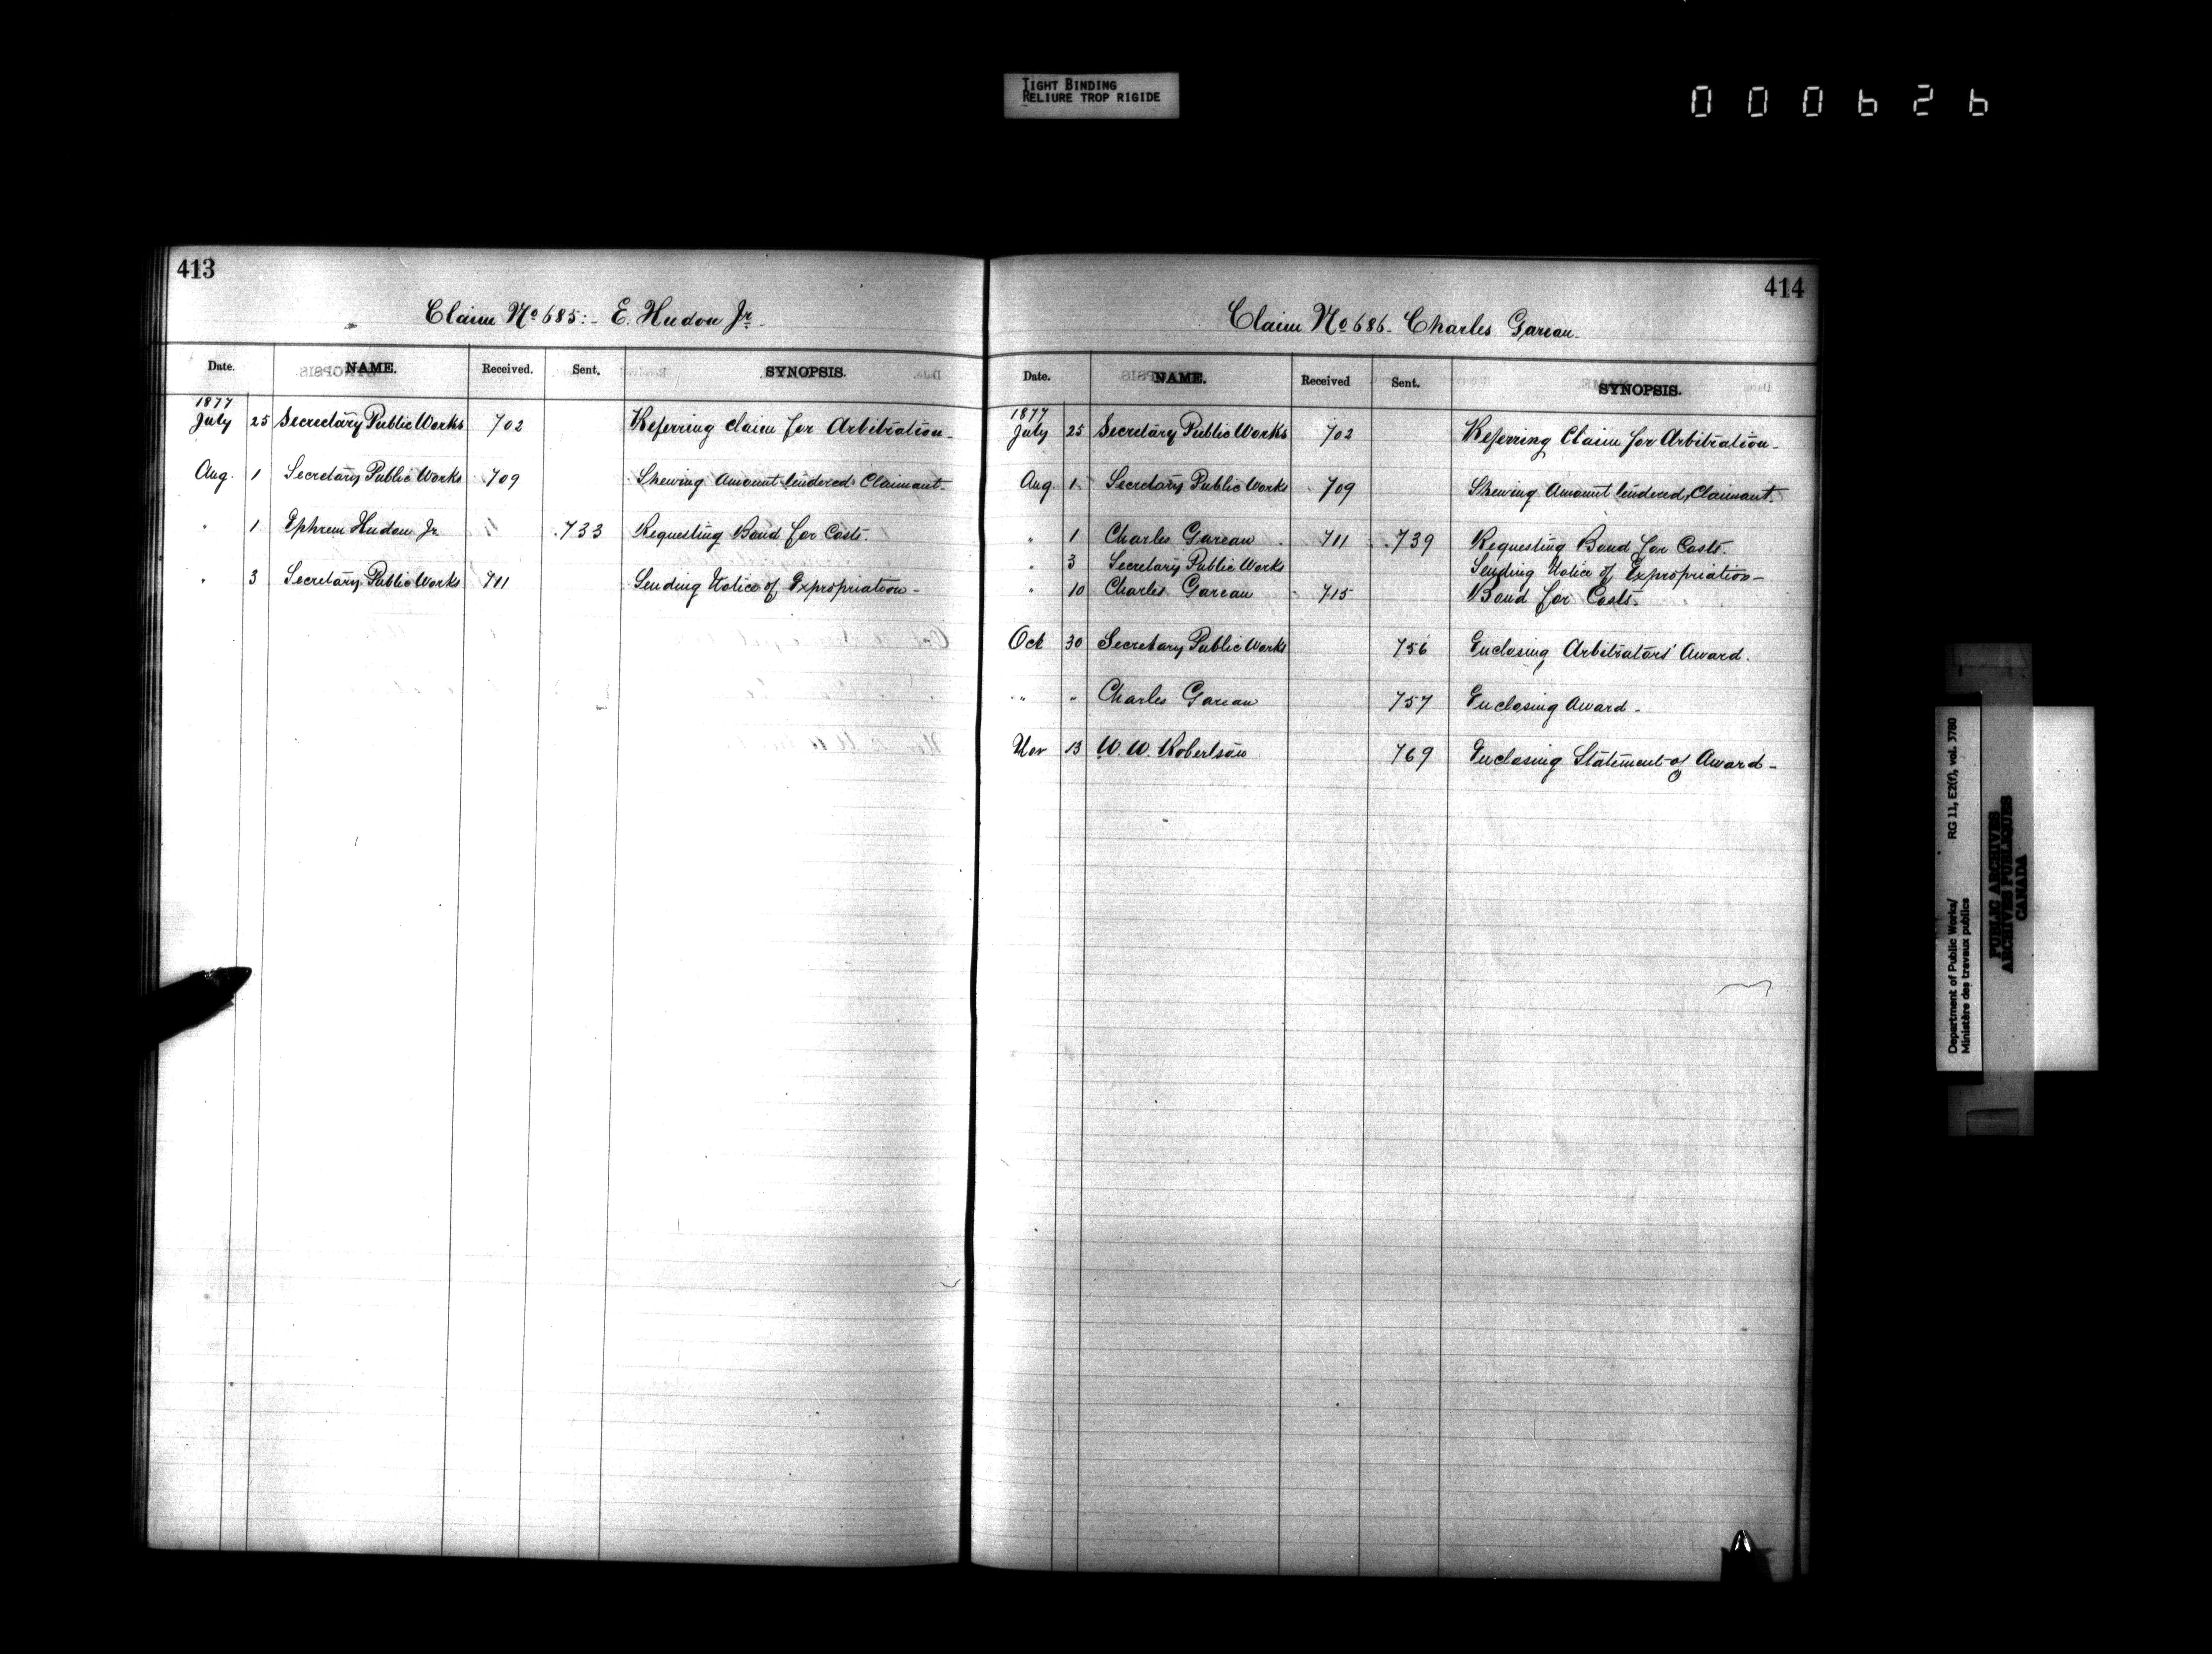 TIGHT BINDING
RELIURE TROP RIGIDE
000626
413
Claim No 685:- E. Hudon Jr.
Date. NAME. Received. Sent. SYNOPSIS.
1877
July 25 Secretary Public Works 702 Referring claim for Arbitration-
Aug. 1 Secretary Public Works 709 Shewing Amount tendered Claimant-
" 1 Ephrem Hudon Jr 733 Requesting Bond for Costs.
" 3 Secretary Public Works 711 Sending Notice of Expropriation-
414
Claim No 686- Charles Gareau.
Date. NAME. Received Sent. SYNOPSIS.
1877
July 25 Secretary Public Works 702 Referring Claim for Arbitration-
Aug 1 Secretary Public Works 709 Shewing Amount tendered Claimant.
" 1 Charles Gareau 711 739 Requesting Bond for Costs.
" 3 Secretary Public Works Sending Notice of Expropriation-
" 10 Charles Gareau 715 Bond for Costs.
Oct 30 Secretary Public Works 756 Enclosing Arbitrators' Award.
" " Charles Gareau 757 Enclosing Award-
Nov 13 W. W. Robertson 769 Enclosing Statement of Award-
Department of Public Works/ RG 11, E2(f), vol. 3780
Ministère des travaux publics
PUBLIC ARCHIVES
ARCHIVES PUBLIQUES
CANADA